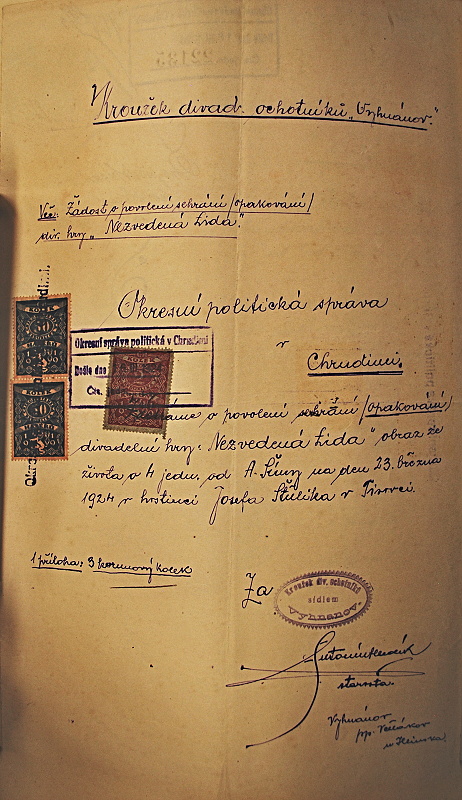 Kroužek divad. ochotníků „Vyhnánov."
Věc: Žádost o povolení sehrání /opakování/
div. hry „Nezvedená Lida".
Okresní politická správa
v
Chrudimi.
Okresní správa politická v Chrudimi
Došlo dne
Čís.
KOLEK
KOLEK
KOLEK
50
o povolení sehrání /opakování/
divadelní hry: „Nezvedená Lida" obraz ze
života o 4 jedn. od A. Šímy na den 23. března
1924 v hostinci Josefa Stúlíka v Tisovci.
1 příloha: 3 korunový kolek
Za
Kroužek div. ochotníků
sídlem
Vyhnánov.
starosta.
Vyhnánov
pp. Včelákov
u Hlinska